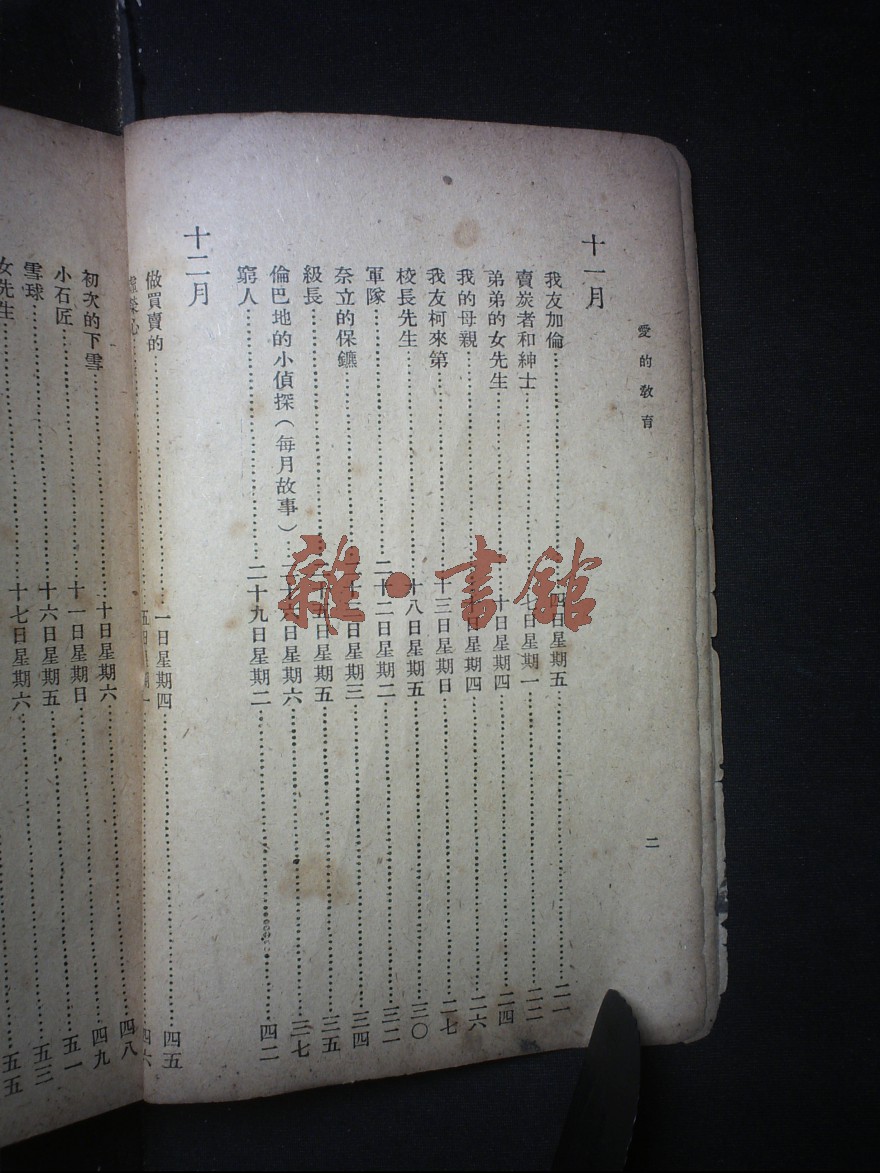 愛的教育
二
十一月
我友加倫……四日星期五……二一
賣炭者和紳士……七日星期一……二二
弟弟的女先生……十日星期四……二四
我的母親……十日星期四……二六
我友柯來第……十三日星期日……二七
校長先生……十八日星期五……三〇
軍隊……二十二日星期二……三二
奈立的保鑣……星期三……三四
級長……日星期五……三五
倫巴地的小偵探(每月故事)……日星期六……三七
窮人……二十九日星期二……四二
十二月
做買賣的……一日星期四……四五
虛榮心……五日星期一……四六
初次的下雪……十日星期六……四八
小石匠……十一日星期日……四九
雪球……十六日星期五……五一
女先生……十七日星期六……五三
五五
雜·書館